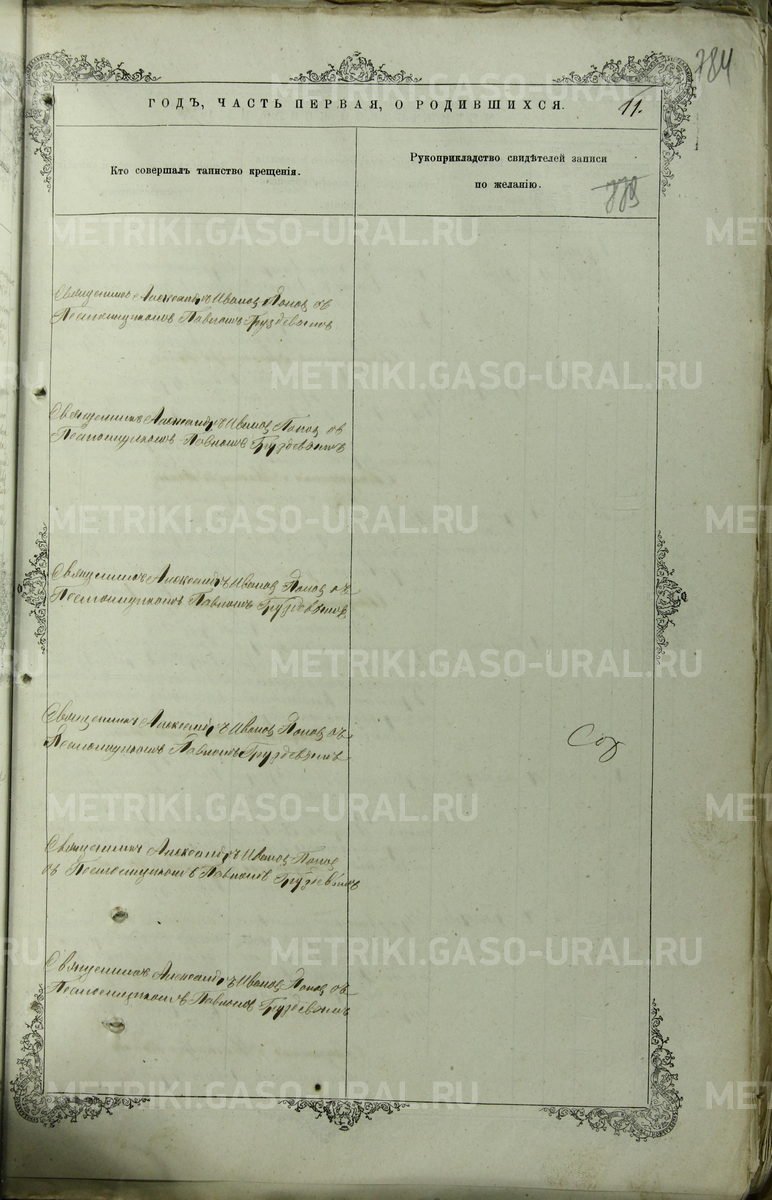 784
ГОДЪ, ЧАСТЬ ПЕРВАЯ, О РОДИВШИХСЯ.
11.
Кто совершалъ таинство крещенія.
Рукоприкладство свидѣтелей записи
по желанію.
779
METRIKI.GASO-URAL.RU
Священникъ Александръ Иванов Попов съ
Псаломщикомъ Павломъ Груздевымъ
METRIKI.GASO-URAL.RU
Священникъ Александръ Иванов Попов съ
Псаломщикомъ Павломъ Груздевымъ
METRIKI.GASO-URAL.RU
Священникъ Александръ Иванов Попов съ
Псаломщикомъ Павломъ Груздевымъ
METRIKI.GASO-URAL.RU
Священникъ Александръ Иванов Попов съ
Псаломщикомъ Павломъ Груздевымъ
METRIKI.GASO-URAL.RU
Священникъ Александръ Иванов Попов
съ Псаломщикомъ Павломъ Груздевымъ
METRIKI.GASO-URAL.RU
Священникъ Александръ Иванов Попов съ
Псаломщикомъ Павломъ Груздевымъ
METRIKI.GASO-URAL.RU